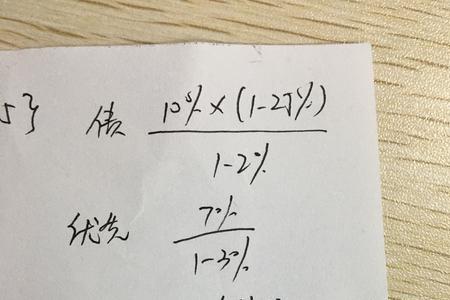 债 10%×(1-25%)
1-2%
优先 7%
1-3%